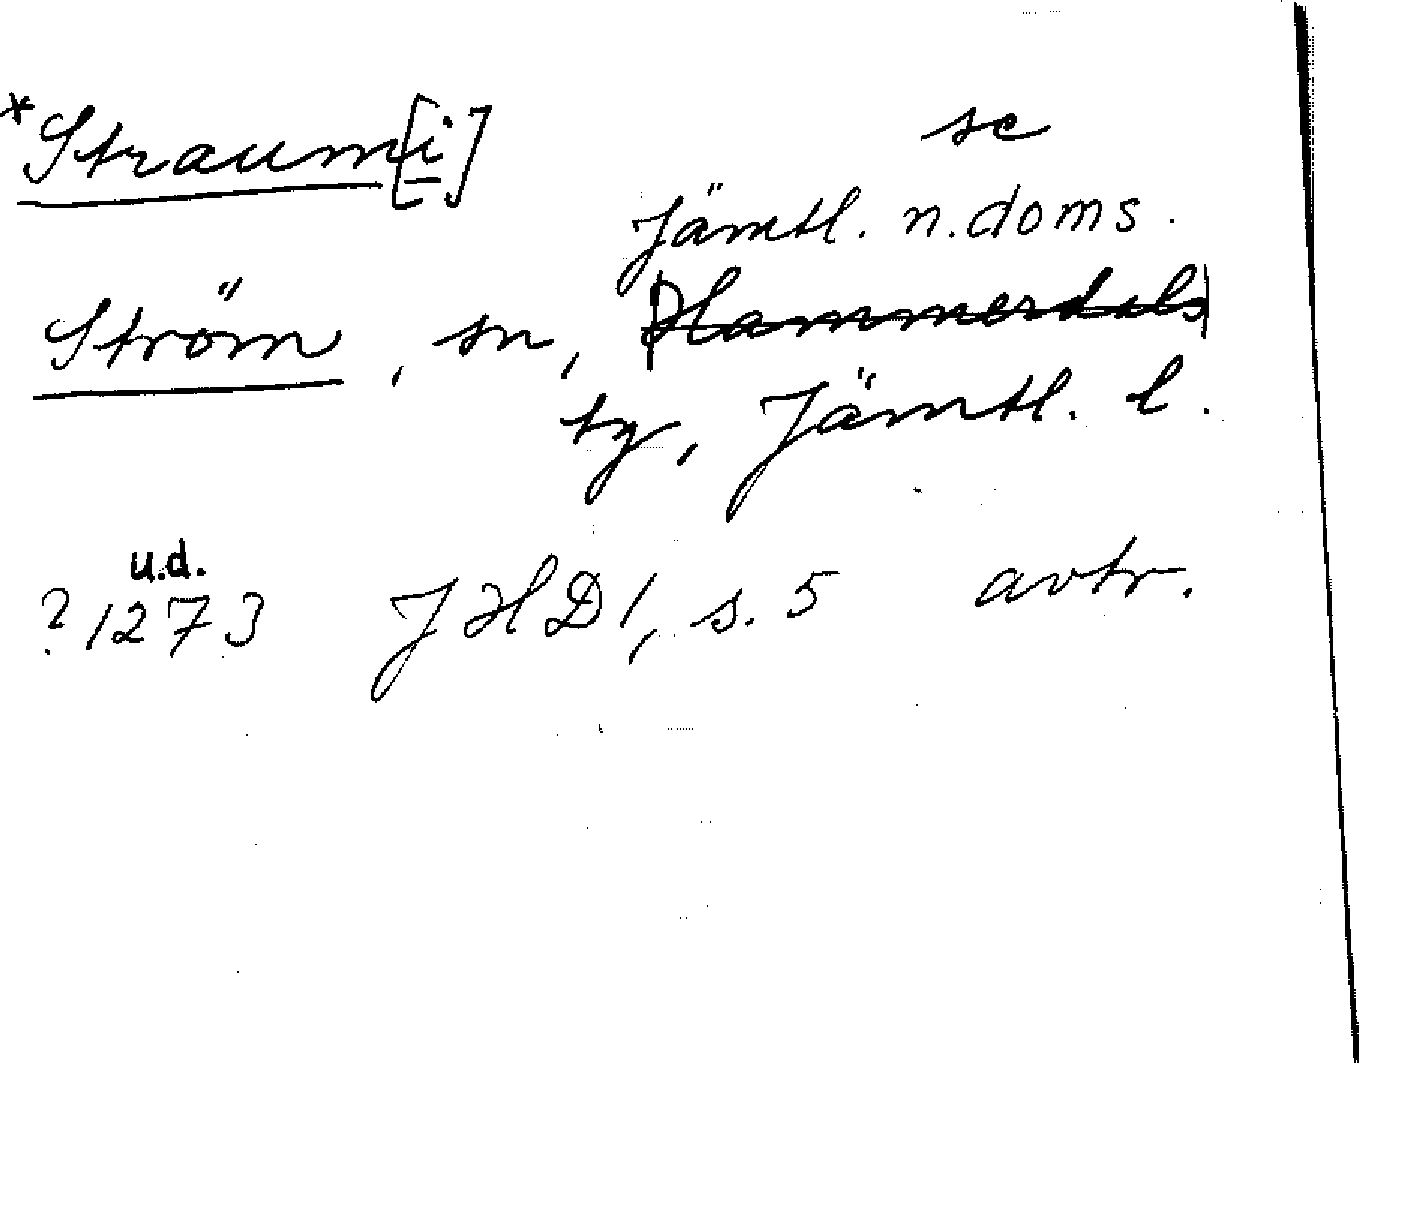 *Straum[i] se
Jämtl. n. doms.
Ström, sn, Hammerdals
tg, Jämtl. l.
u.d.
? 1273 JHD 1, s. 5 avtr.